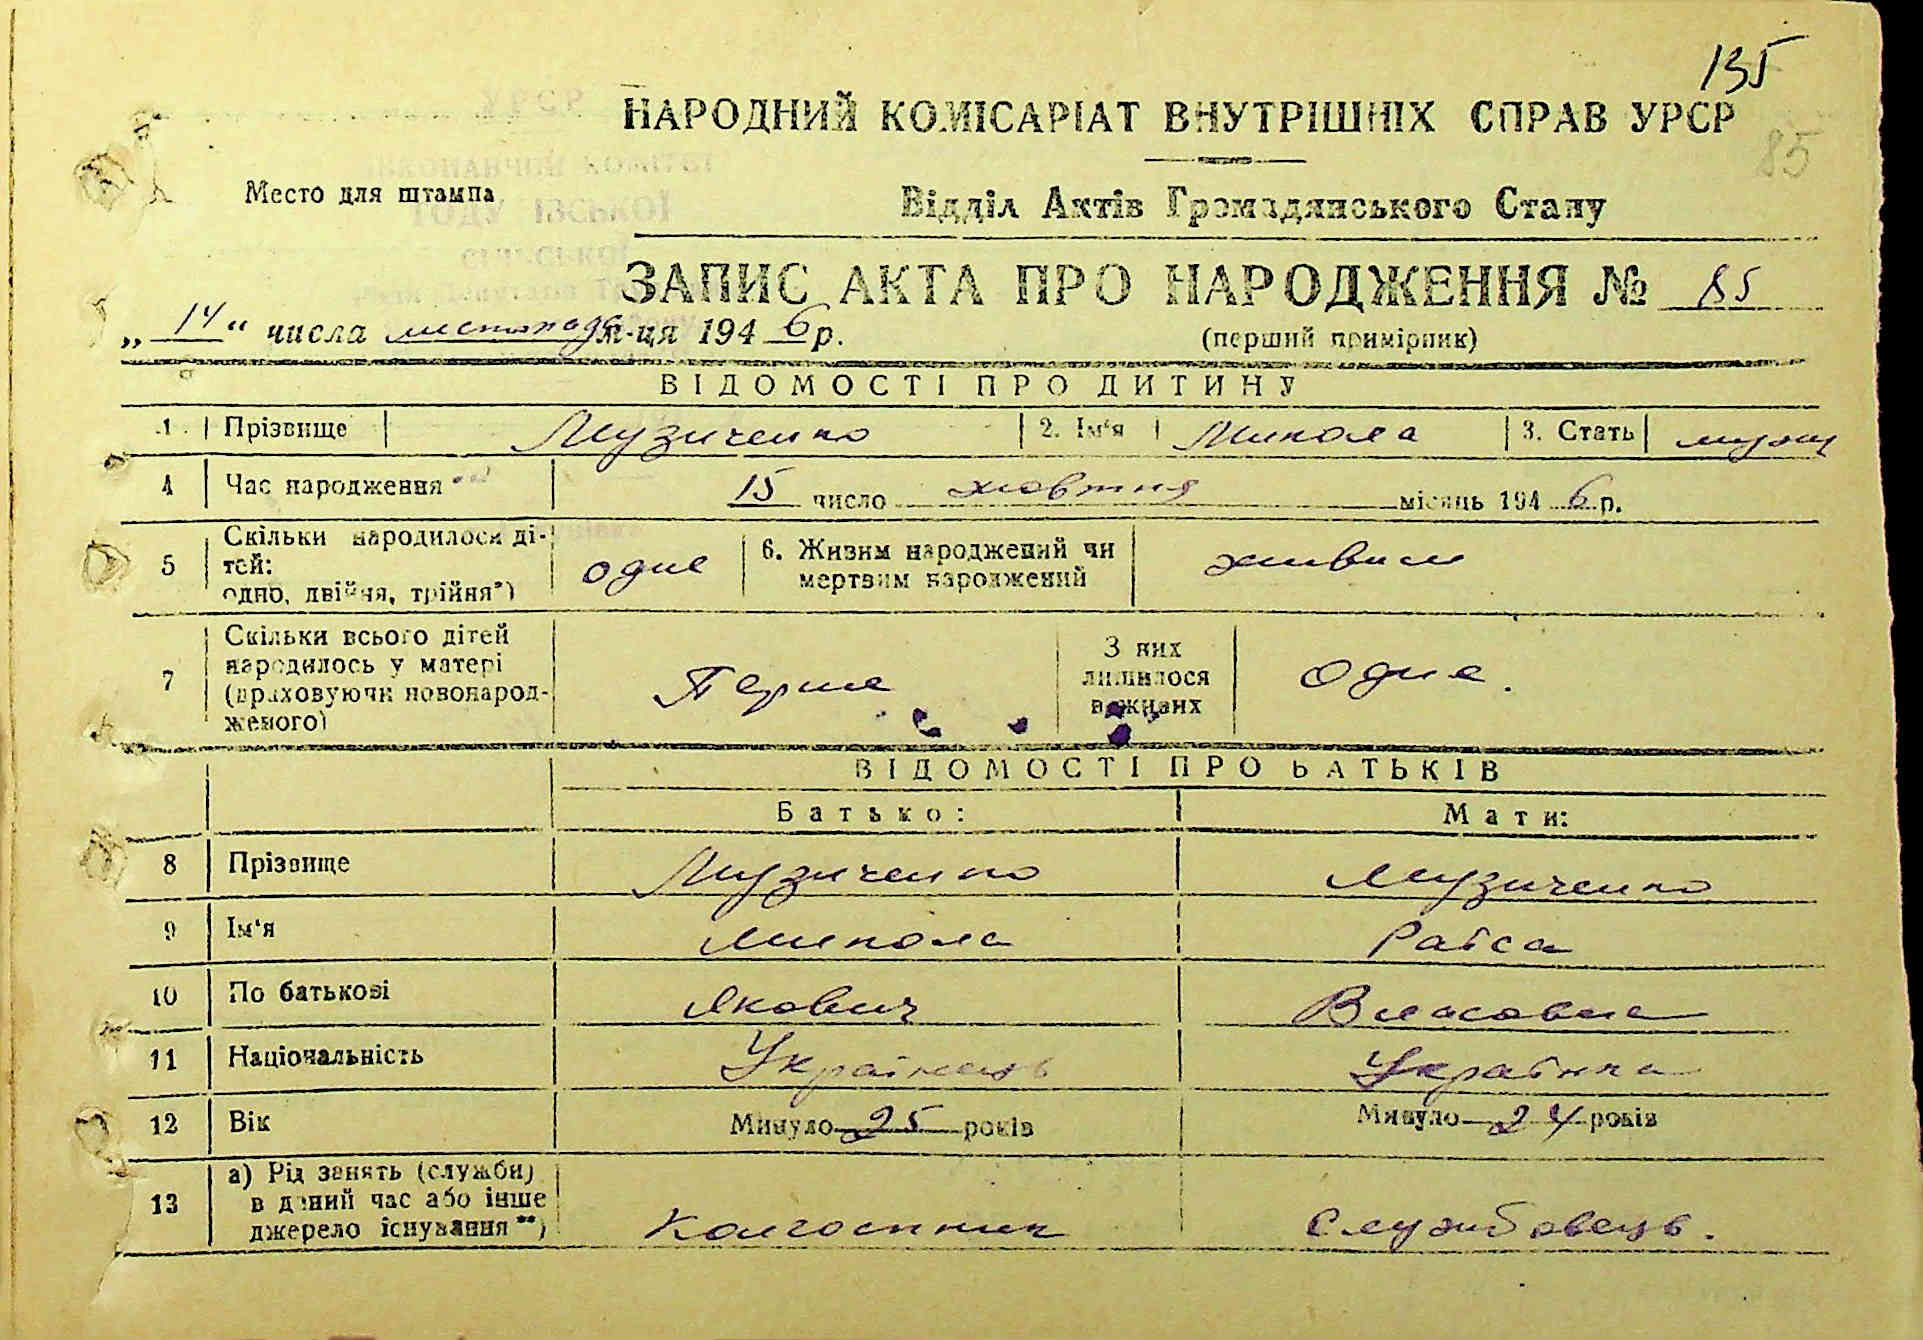 135
НАРОДНИЙ КОМІСАРІАТ ВНУТРІШНІХ СПРАВ УРСР
85
Место для штампа
Відділ Актів Громадянського Стану
ЗАПИС АКТА ПРО НАРОДЖЕННЯ № 85
„ 14 “ числа листопада м-ця 194 6 р.
(перший примірник)
ВІДОМОСТІ ПРО ДИТИНУ
1 Прізвище Музиченко 2. Ім‘я Микола 3. Стать муж
4 Час народження 15 число жовтня місяць 194 6 р.
5 Скільки народилося ді-
тей:
одно, двійня, трійня*)
одне
6. Живим народжений чи
мертвим народжений
живим
7 Скільки всього дітей
народилось у матері
(враховуючи новонарод-
женого)
Перше
З них
лишилося
в живих
Одне.
ВІДОМОСТІ ПРО БАТЬКІВ
Батько: Мати:
8 Прізвище Музиченко Музиченко
9 Ім‘я Микола Раїса
10 По батькові Якович Власовна
11 Національність Українець Українка
12 Вік Минуло 25 років Минуло 24 років
13 а) Рід занять (служби)
в даний час або інше
джерело існування**)
Колгоспник Службовець.